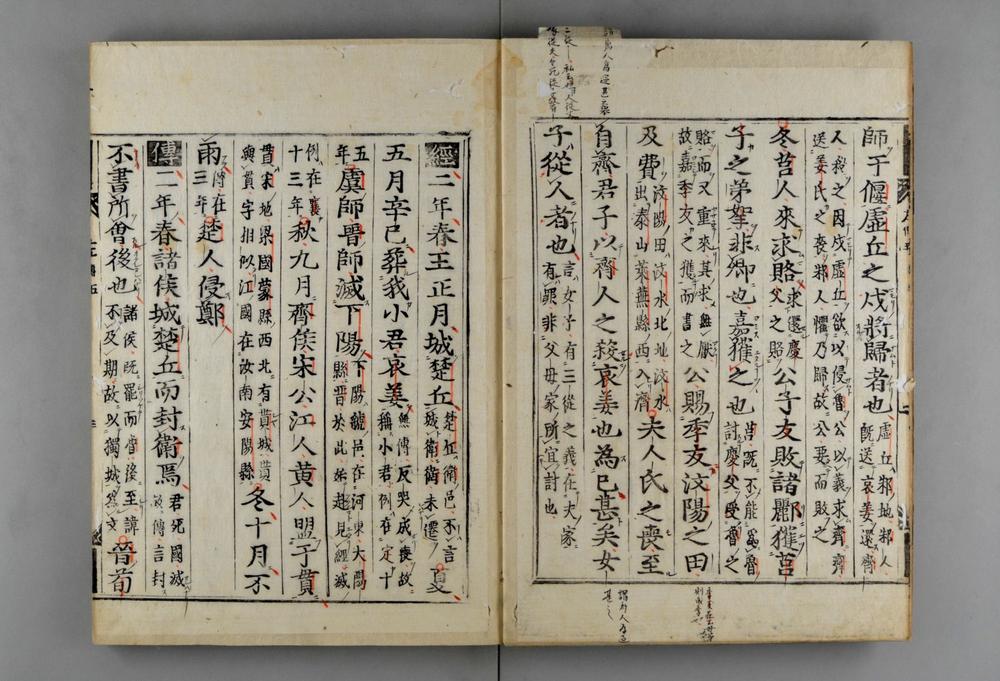 師于偃虛丘之戍將歸者也虛丘邾地邾人既送哀姜還齊
人殺之因戍虛丘欲以侵魯公以義求齊齊送姜氏之喪邾人懼乃歸故公要而敗之
冬莒人來求賂求還慶父之賂公子友敗諸酈獲莒
子之弟挐非卿也嘉獲之也莒既不能為魯討慶父受魯之
賂而又重來其求無厭故嘉季友之獲而書之公賜季友汶陽之田
及費汶陽田汶水北地汶水出泰山萊蕪縣西入濟夫人氏之喪至
自齊君子以齊人之殺哀姜也為已甚矣女
子從人者也言女子有三從之義在夫家有罪非父母家所宜討也
經二年春王正月城楚丘楚丘衛邑不言城衛衛未遷夏
五月辛巳葬我小君哀姜無傳反哭成喪故稱小君例在定十
五年虞師晉師滅下陽下陽虢邑在河東大陽縣晉於此始赴見經滅
例在襄十三年秋九月齊侯宋公江人黃人盟于貫
貫宋地梁國蒙縣西北有貰城貰與貫字相似江國在汝南安陽縣冬十月不
雨傳在三年楚人侵鄭
傳二年春諸侯城楚丘而封衛焉君死國滅故傳言封
不書所會後也諸侯既罷而魯後至諱不及期故以獨城為文晉荀